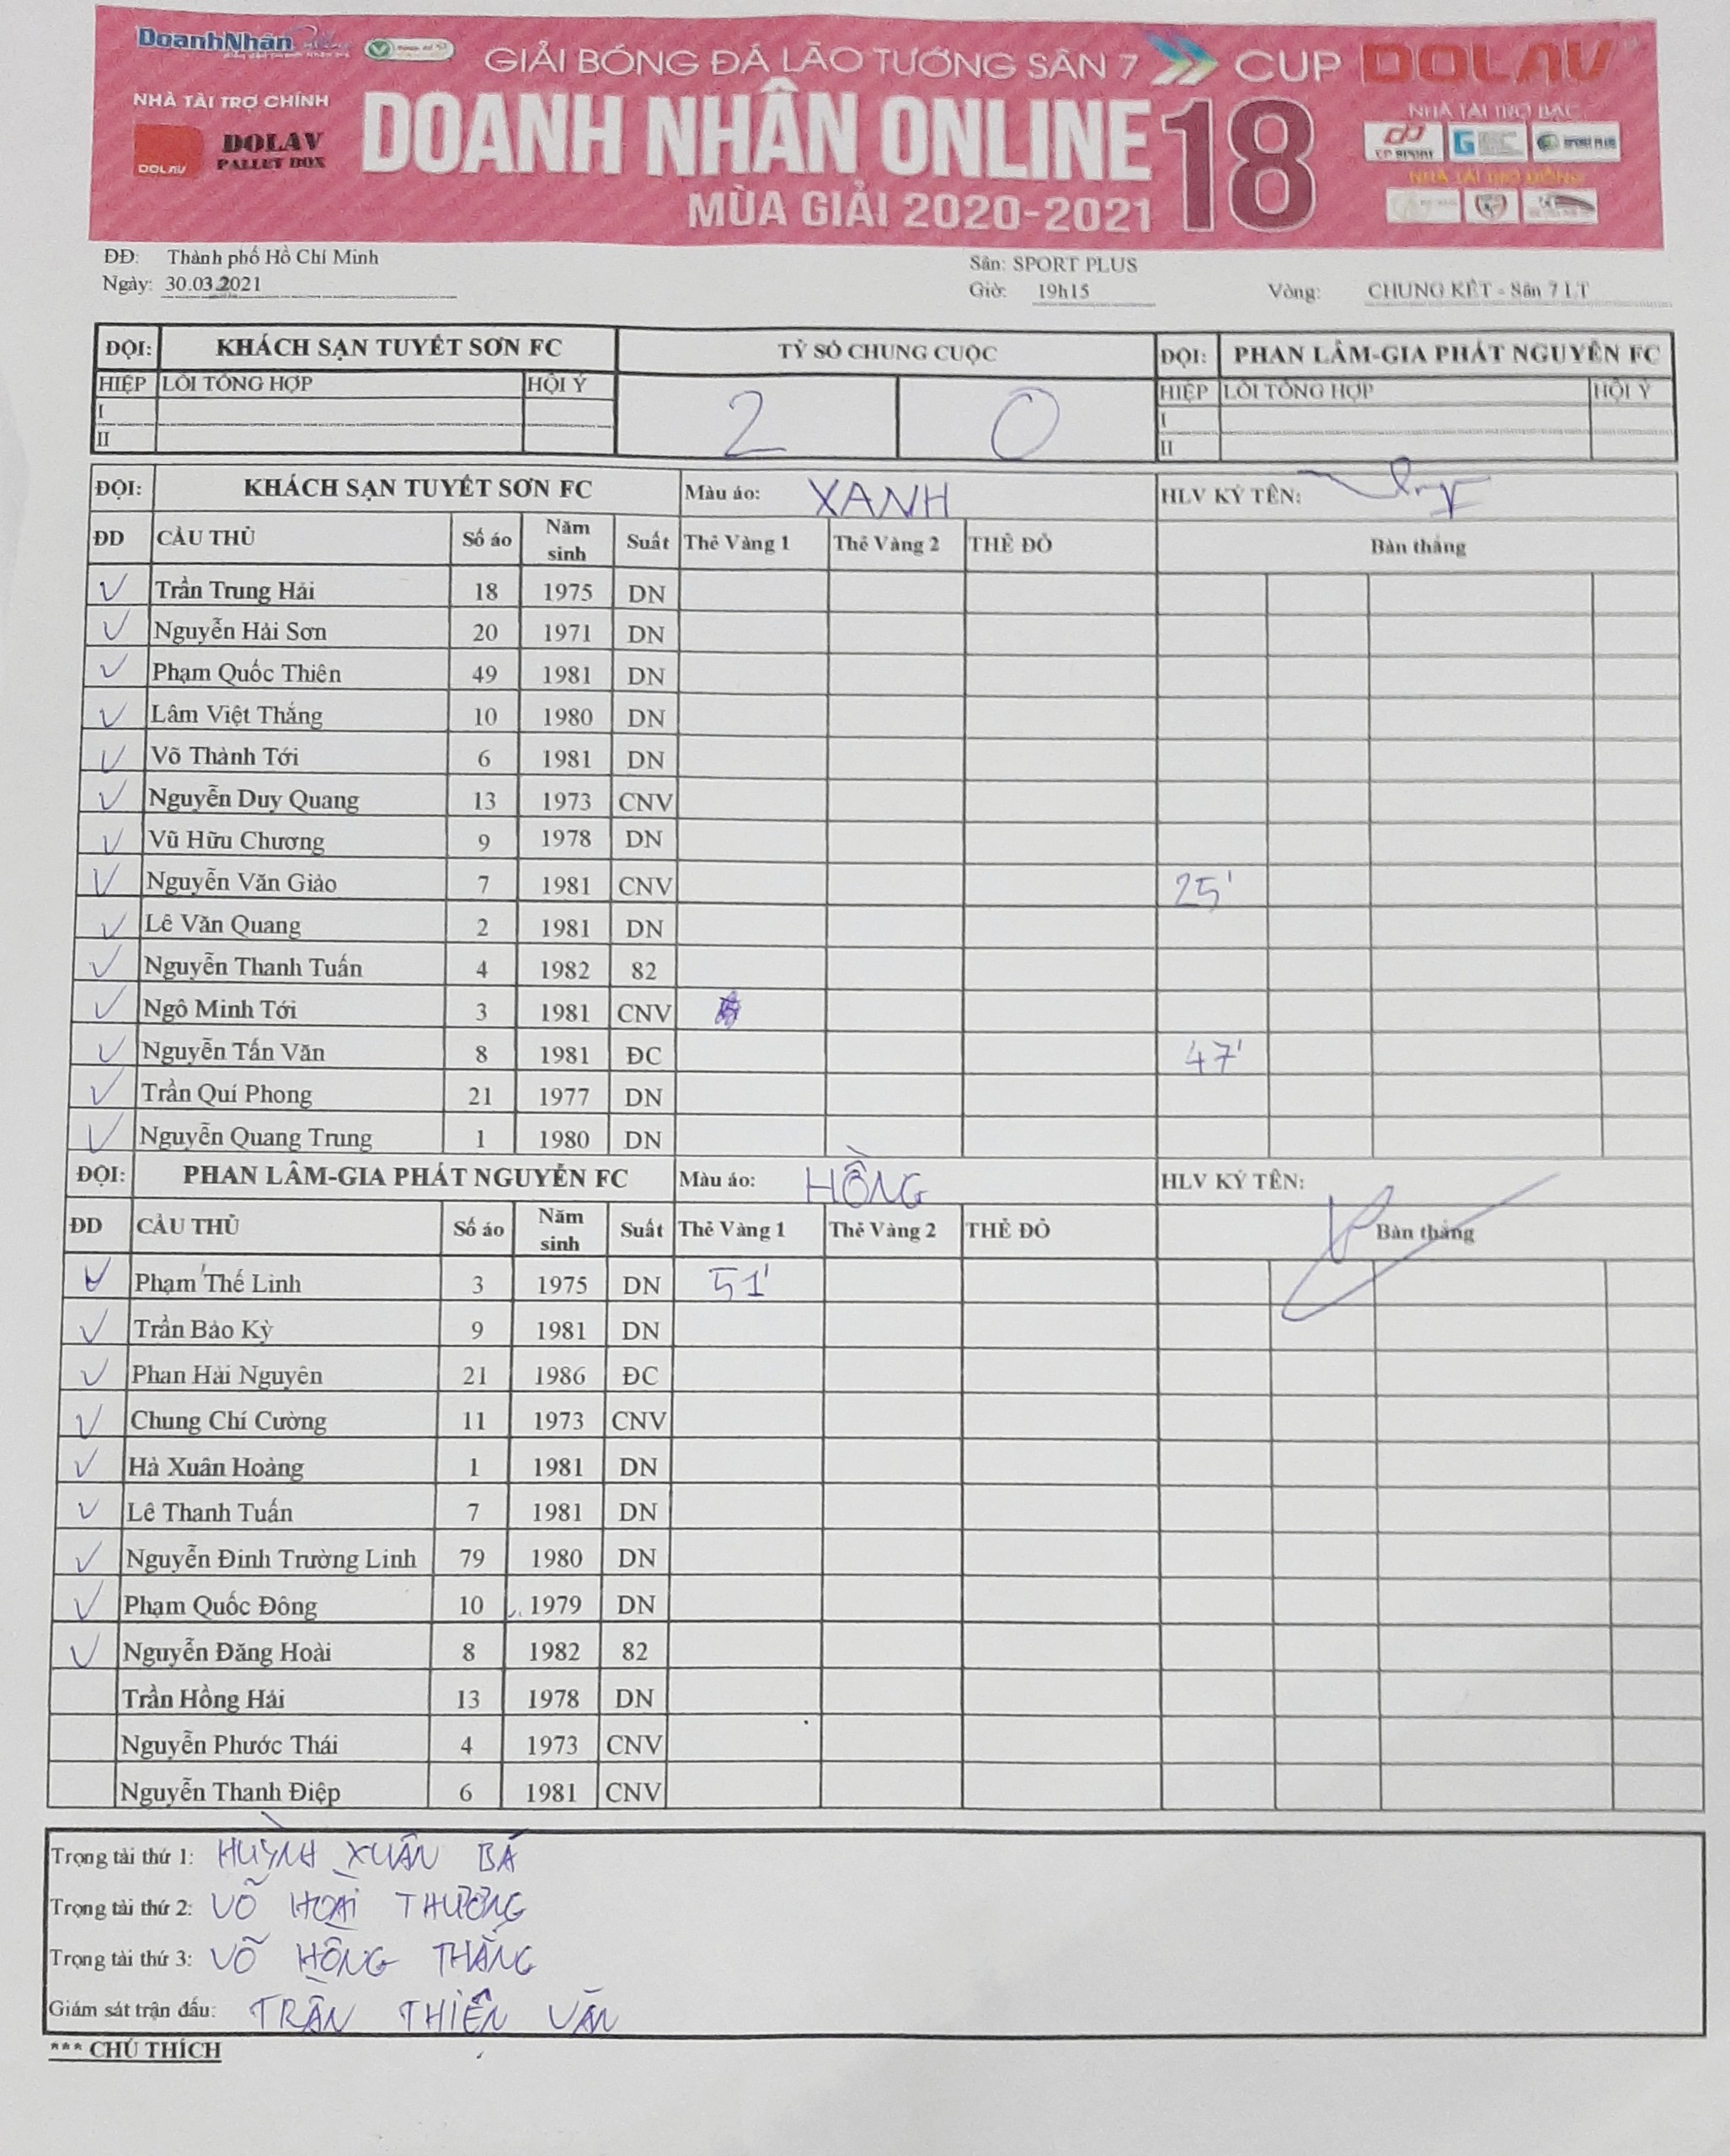 DoanhNhân
GIẢI BÓNG ĐÁ LÃO TƯỚNG SÂN 7 CUP DOLAV
NHÀ TÀI TRỢ CHÍNH
DOLAV
DOLAV PALLET BOX
DOANH NHÂN ONLINE 18
MÙA GIẢI 2020-2021
NHÀ TÀI TRỢ BẠC
CP SPORT SPORT PLUS
NHÀ TÀI TRỢ ĐỒNG
ĐĐ: Thành phố Hồ Chí Minh Sân: SPORT PLUS
Ngày: 30.03.2021 Giờ: 19h15 Vòng: CHUNG KẾT - Sân 7 LT
ĐỘI: KHÁCH SẠN TUYẾT SƠN FC TỶ SỐ CHUNG CUỘC ĐỘI: PHAN LÂM-GIA PHÁT NGUYỄN FC
HIỆP LỖI TỔNG HỢP HỘI Ý 2 0 HIỆP LỖI TỔNG HỢP HỘI Ý
I I
II II
ĐỘI: KHÁCH SẠN TUYẾT SƠN FC Màu áo: XANH HLV KÝ TÊN:
ĐD CẦU THỦ Số áo Năm sinh Suất Thẻ Vàng 1 Thẻ Vàng 2 THẺ ĐỎ Bàn thắng
V Trần Trung Hải 18 1975 DN
V Nguyễn Hải Sơn 20 1971 DN
V Phạm Quốc Thiên 49 1981 DN
V Lâm Việt Thắng 10 1980 DN
V Võ Thành Tới 6 1981 DN
V Nguyễn Duy Quang 13 1973 CNV
V Vũ Hữu Chương 9 1978 DN
V Nguyễn Văn Giảo 7 1981 CNV 25'
V Lê Văn Quang 2 1981 DN
V Nguyễn Thanh Tuấn 4 1982 82
V Ngô Minh Tới 3 1981 CNV
V Nguyễn Tấn Văn 8 1981 ĐC 47'
V Trần Quí Phong 21 1977 DN
V Nguyễn Quang Trung 1 1980 DN
ĐỘI: PHAN LÂM-GIA PHÁT NGUYỄN FC Màu áo: HỒNG HLV KÝ TÊN:
ĐD CẦU THỦ Số áo Năm sinh Suất Thẻ Vàng 1 Thẻ Vàng 2 THẺ ĐỎ Bàn thắng
V Phạm Thế Linh 3 1975 DN 51'
V Trần Bảo Kỳ 9 1981 DN
V Phan Hải Nguyên 21 1986 ĐC
V Chung Chí Cường 11 1973 CNV
V Hà Xuân Hoàng 1 1981 DN
V Lê Thanh Tuấn 7 1981 DN
V Nguyễn Đình Trường Linh 79 1980 DN
V Phạm Quốc Đông 10 1979 DN
V Nguyễn Đăng Hoài 8 1982 82
Trần Hồng Hải 13 1978 DN
Nguyễn Phước Thái 4 1973 CNV
Nguyễn Thanh Điệp 6 1981 CNV
Trọng tài thứ 1: HUỲNH XUÂN BÁ
Trọng tài thứ 2: VÕ HOÀI THƯƠNG
Trọng tài thứ 3: VÕ HỒNG THẮNG
Giám sát trận đấu: TRẦN THIÊN VĂN
*** CHÚ THÍCH